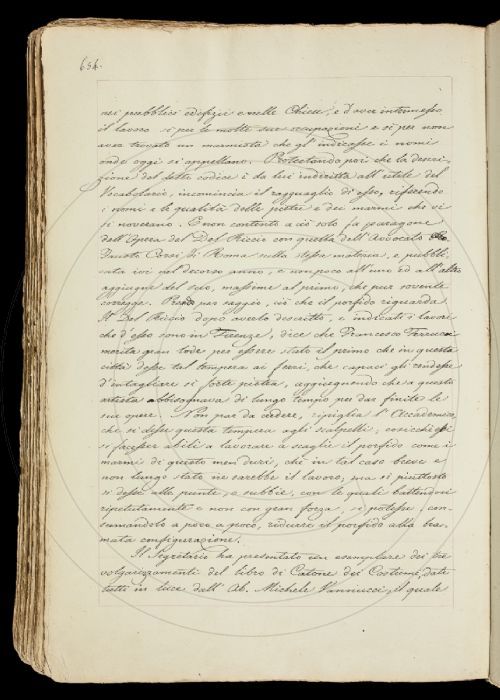 654.
nei pubblici edifizii e nelle Chiese, e d'aver intermesso
il lavoro sì per le molte sue occupazioni e sì per non
aver trovato un marmista che gl'indicasse i nomi
onde oggi si appellano. Protestando poi che la descri-
zione del detto codice è da lui indiritta all'utile del
Vocabolario, incomincia il ragguaglio di esso, riferendo
i nomi e le qualità delle pietre e dei marmi che vi
si noverano. E non contento a ciò solo, fa paragone
dell'Opera del Del Riccio con quella dell'Avvocato
Corsi di Roma sulla stessa materia, e pubbli-
cata ivi nel decorso anno, e un poco all'uno ed all'altro
aggiugne del suo, massime al primo, che pur sovente
corregge. Prendo per saggio, ciò che il porfido riguarda.
Il Del Riccio dopo averlo descritto, e indicati i lavori
che d'esso sono in Firenze, dice che Francesco Ferrucci
merita gran lode per essere stato il primo che in questa
città desse tal tempera ai ferri, che capaci gli rendesse
d'intagliare sì forte pietra, aggiugnendo che a questo
artista abbisognava di lungo tempo per dar finite le
sue opere. Non par da credere, ripiglia l'Accademico,
che si desse questa tempera agli scalpelli, cosicchè
si facesser abili a lavorare a scaglie il porfido come i
marmi di questo men duri, che in tal caso breve e
non lungo stato ne sarebbe il lavoro, ma sì piuttosto
si desse alle punte, o subbie, con le quali battendosi
ripetutamente e non con gran forza, si potesse, con-
sumandolo a poco a poco, ridurre il porfido alla bra-
mata configurazione.
Il Segretario ha presentato un esemplare dei tre
volgarizzamenti del libro di Catone dei Costumi, dati
tutti in luce dall'Ab. Michele Vannucci, il quale